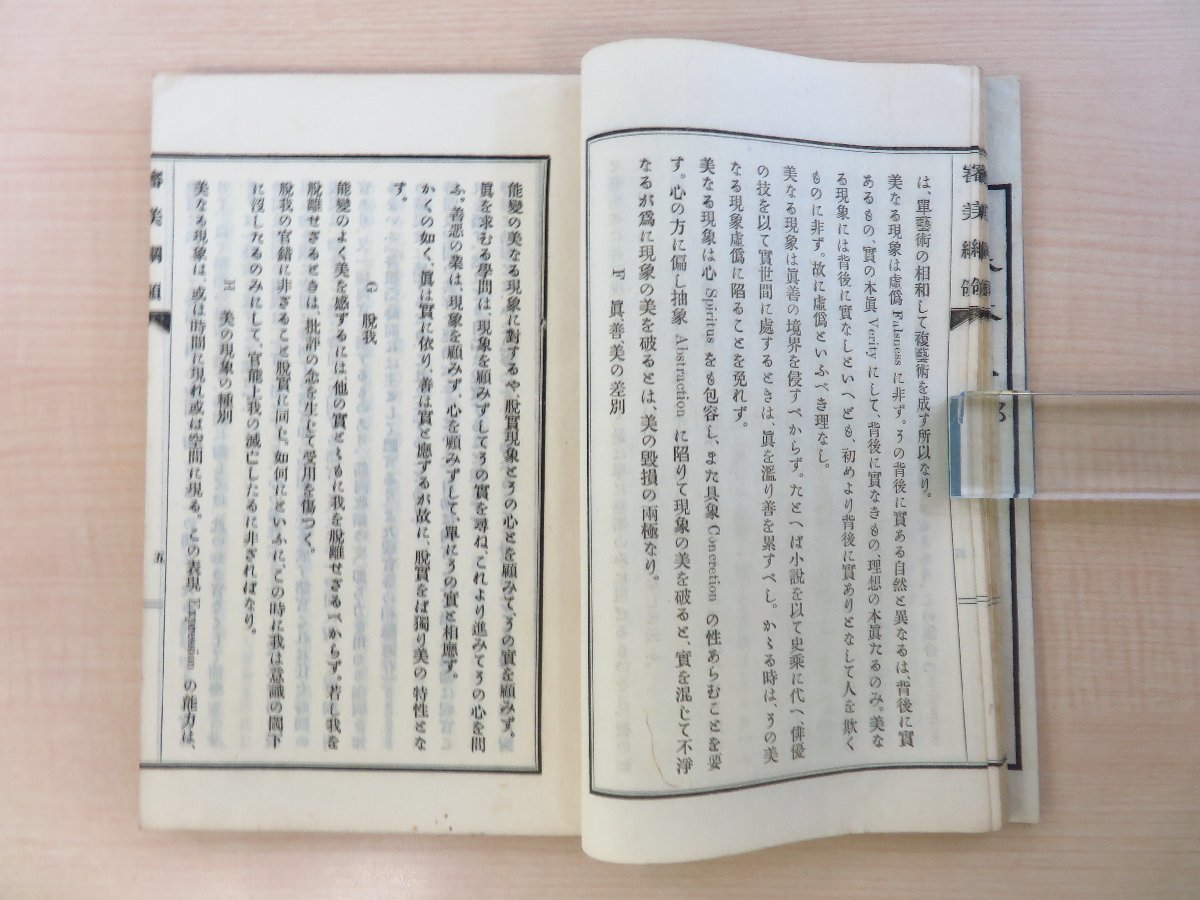 審美綱領
は、單藝術の相和して複藝術を成す所以なり。
美なる現象は虛僞 Falsness に非ず。その背後に實ある自然と異なるは、背後に實
あるもの、實の本眞 Verity にして、背後に實なきもの、理想の本眞たるのみ。美な
る現象には背後に實なしといへども、初めより背後に實ありとなして人を欺く
ものに非ず。故に虛僞といふべき理なし。
美なる現象は眞善の境界を侵すべからず。たとへば小說を以て史乘に代へ、俳優
の技を以て實世間に處するときは、眞を濫り善を累すべし。かゝる時は、その美
なる現象虛僞に陷ることを免れず。
美なる現象は心 Spiritus をも包容し、また具象 Concretion の性あらむことを要
す。心の方に偏し抽象 Abstraction に陷りて現象の美を破ると、實を混じて不淨
なるが爲に現象の美を破るとは、美の毀損の兩極なり。
F 眞、善、美の差別
能變の美なる現象に對するや、脫實現象とその心とを顧みて、その實を顧みず、
眞を求むる學問は、現象を顧みずしてその實を尋ね、これより進みてその心を問
ふ。善惡の業は、現象を顧みず、心を顧みずして、單にその實と相應ず。
かくの如く、眞は實に依り、善は實と應ずるが故に、脫實をば獨り美の特性とな
す。
G 脫我
能變のよく美を感ずるには他の實とゝもに我を脫離せざるべからず。若し我を
脫離せざるときは、批評の念を生じて受用を傷つく。
脫我の官錯に非ざること脫實に同じ。如何にといふに、この時に我は意識の閾下
に沒したるのみにして、官能上我の滅亡したるに非ざればなり。
H 美の現象の種別
美なる現象は、或は時間に現れ或は空間に現る。この表現 Expression の能力は、
審美綱領
五